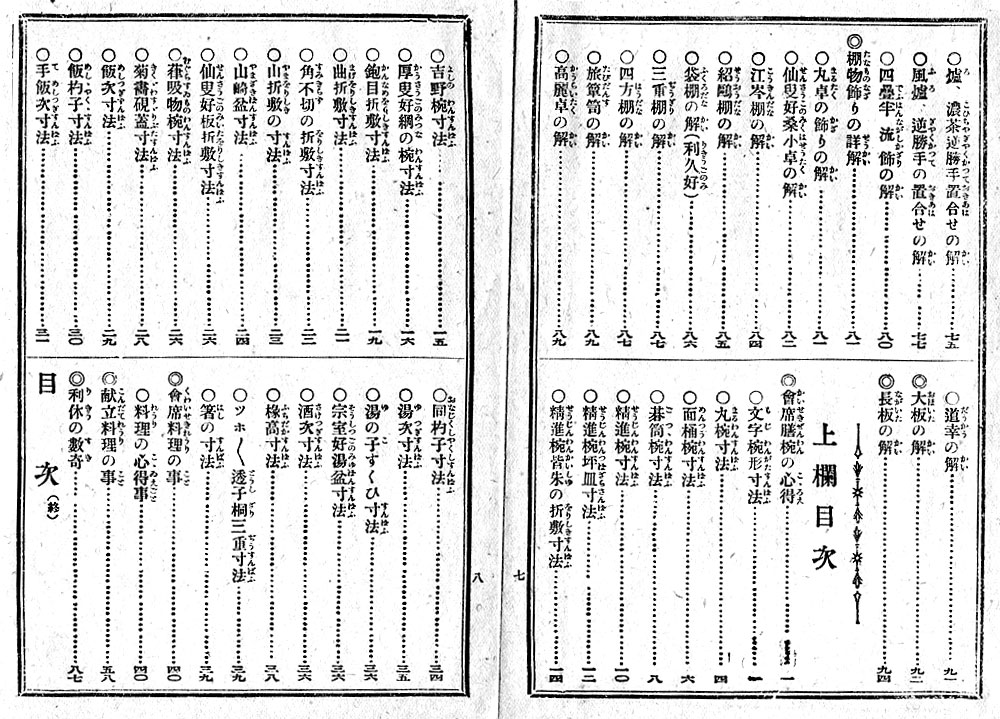 〇爐、濃茶逆勝手置合せの解 七五
〇風爐、逆勝手の置合せの解 七七
〇四疊半流し飾の解 八〇
◎棚物飾りの詳解 八一
〇丸卓の飾りの解 八一
〇仙叟好桑小卓の解 八二
〇江岑棚の解 八四
〇紹鷗棚の解 八五
〇袋棚の解(利久好) 八六
〇三重棚の解 八七
〇四方棚の解 八七
〇旅簞笥の解 八九
〇高麗卓の解 八九
〇道幸の解 九一
◎大板の解 九二
◎長板の解 九四
上欄目次
◎會席膳椀の心得 一
〇文字椀形寸法 一
〇丸椀寸法 四
〇面桶寸法 六
〇碁筒椀寸法 八
〇精進椀寸法 一〇
〇精進椀坪皿寸法 一二
〇精進椀皆朱の折敷寸法 一四
七
〇吉野椀寸法 一五
〇厚叟好綱の椀寸法 一六
〇鉋目折敷寸法 一九
〇曲折敷寸法 二一
〇角不切の折敷寸法 二三
〇山折敷の寸法 二三
〇山崎盆寸法 二四
〇仙叟好板折敷寸法 二六
〇菻吸物椀寸法 二六
〇菊書硯蓋寸法 二八
〇飯次寸法 二九
〇飯杓子寸法 三〇
〇手飯次寸法 三二
〇同杓子寸法 三四
〇湯次寸法 三五
〇湯の子すくひ寸法 三六
〇宗室好湯盆寸法 三六
〇酒次寸法 三六
〇椽高寸法 三八
〇ツホ〱透子桐三重寸法 三九
〇箸の寸法 三九
◎會席料理の事 四〇
〇料理の心得事 四〇
◎献立料理の事 五八
◎利休の數奇 八七
目次(終)
八